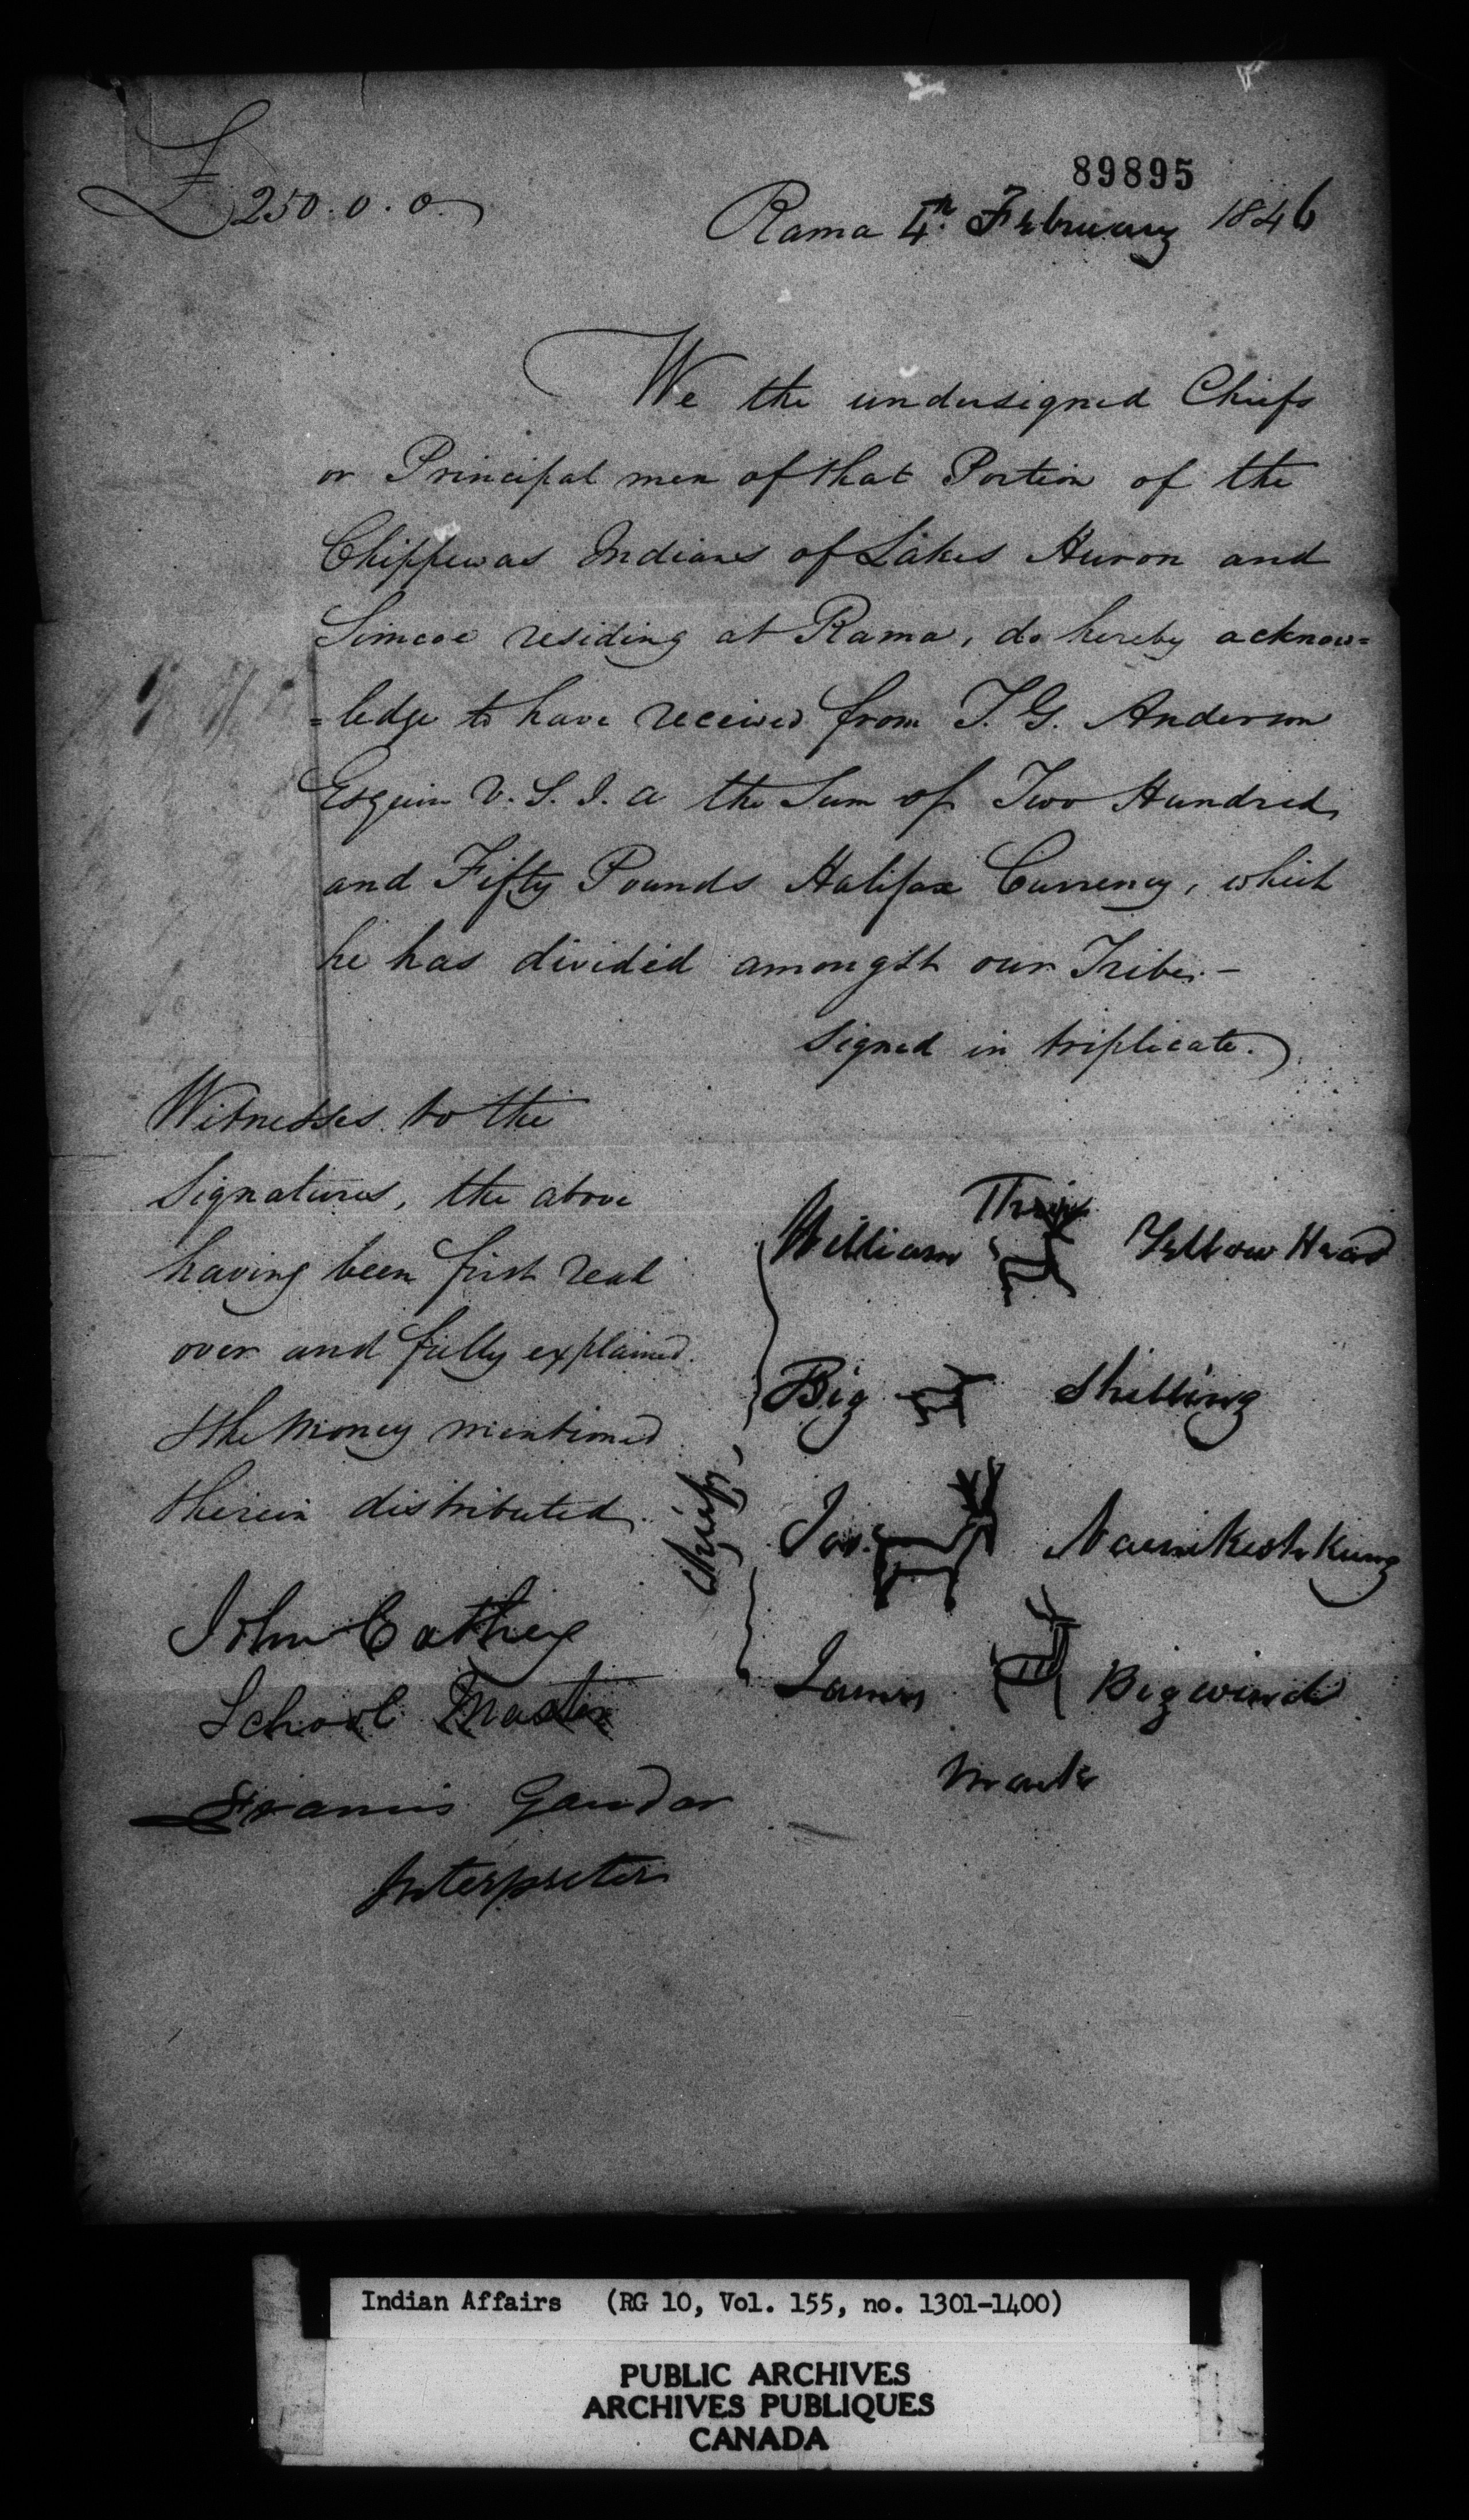 89895
£250.0.0
Rama 4th February 1846
We the undersigned Chiefs
or Principal men of that Portion of the
Chippewas Indians of Lakes Huron and
Simcoe residing at Rama, do hereby acknow=
=ledge to have received from T. G. Anderson
Esquire V. S. I. A the Sum of Two Hundred
and Fifty Pounds Halifax Currency, which
he has divided amongst our Tribe.—
Signed in triplicate.
Witnesses to the
Signatures, the above
having been first read
over and fully explained
& the money mentioned
therein distributed.
John Cathey
School Master
Francis Gaudar
Interpreter
Their
William Yellow Head
Big Shilling
Chiefs
Jas. Naenikeshkung
James Bigwind
Marks
Indian Affairs (RG 10, Vol. 155, no. 1301-1400)
PUBLIC ARCHIVES
ARCHIVES PUBLIQUES
CANADA